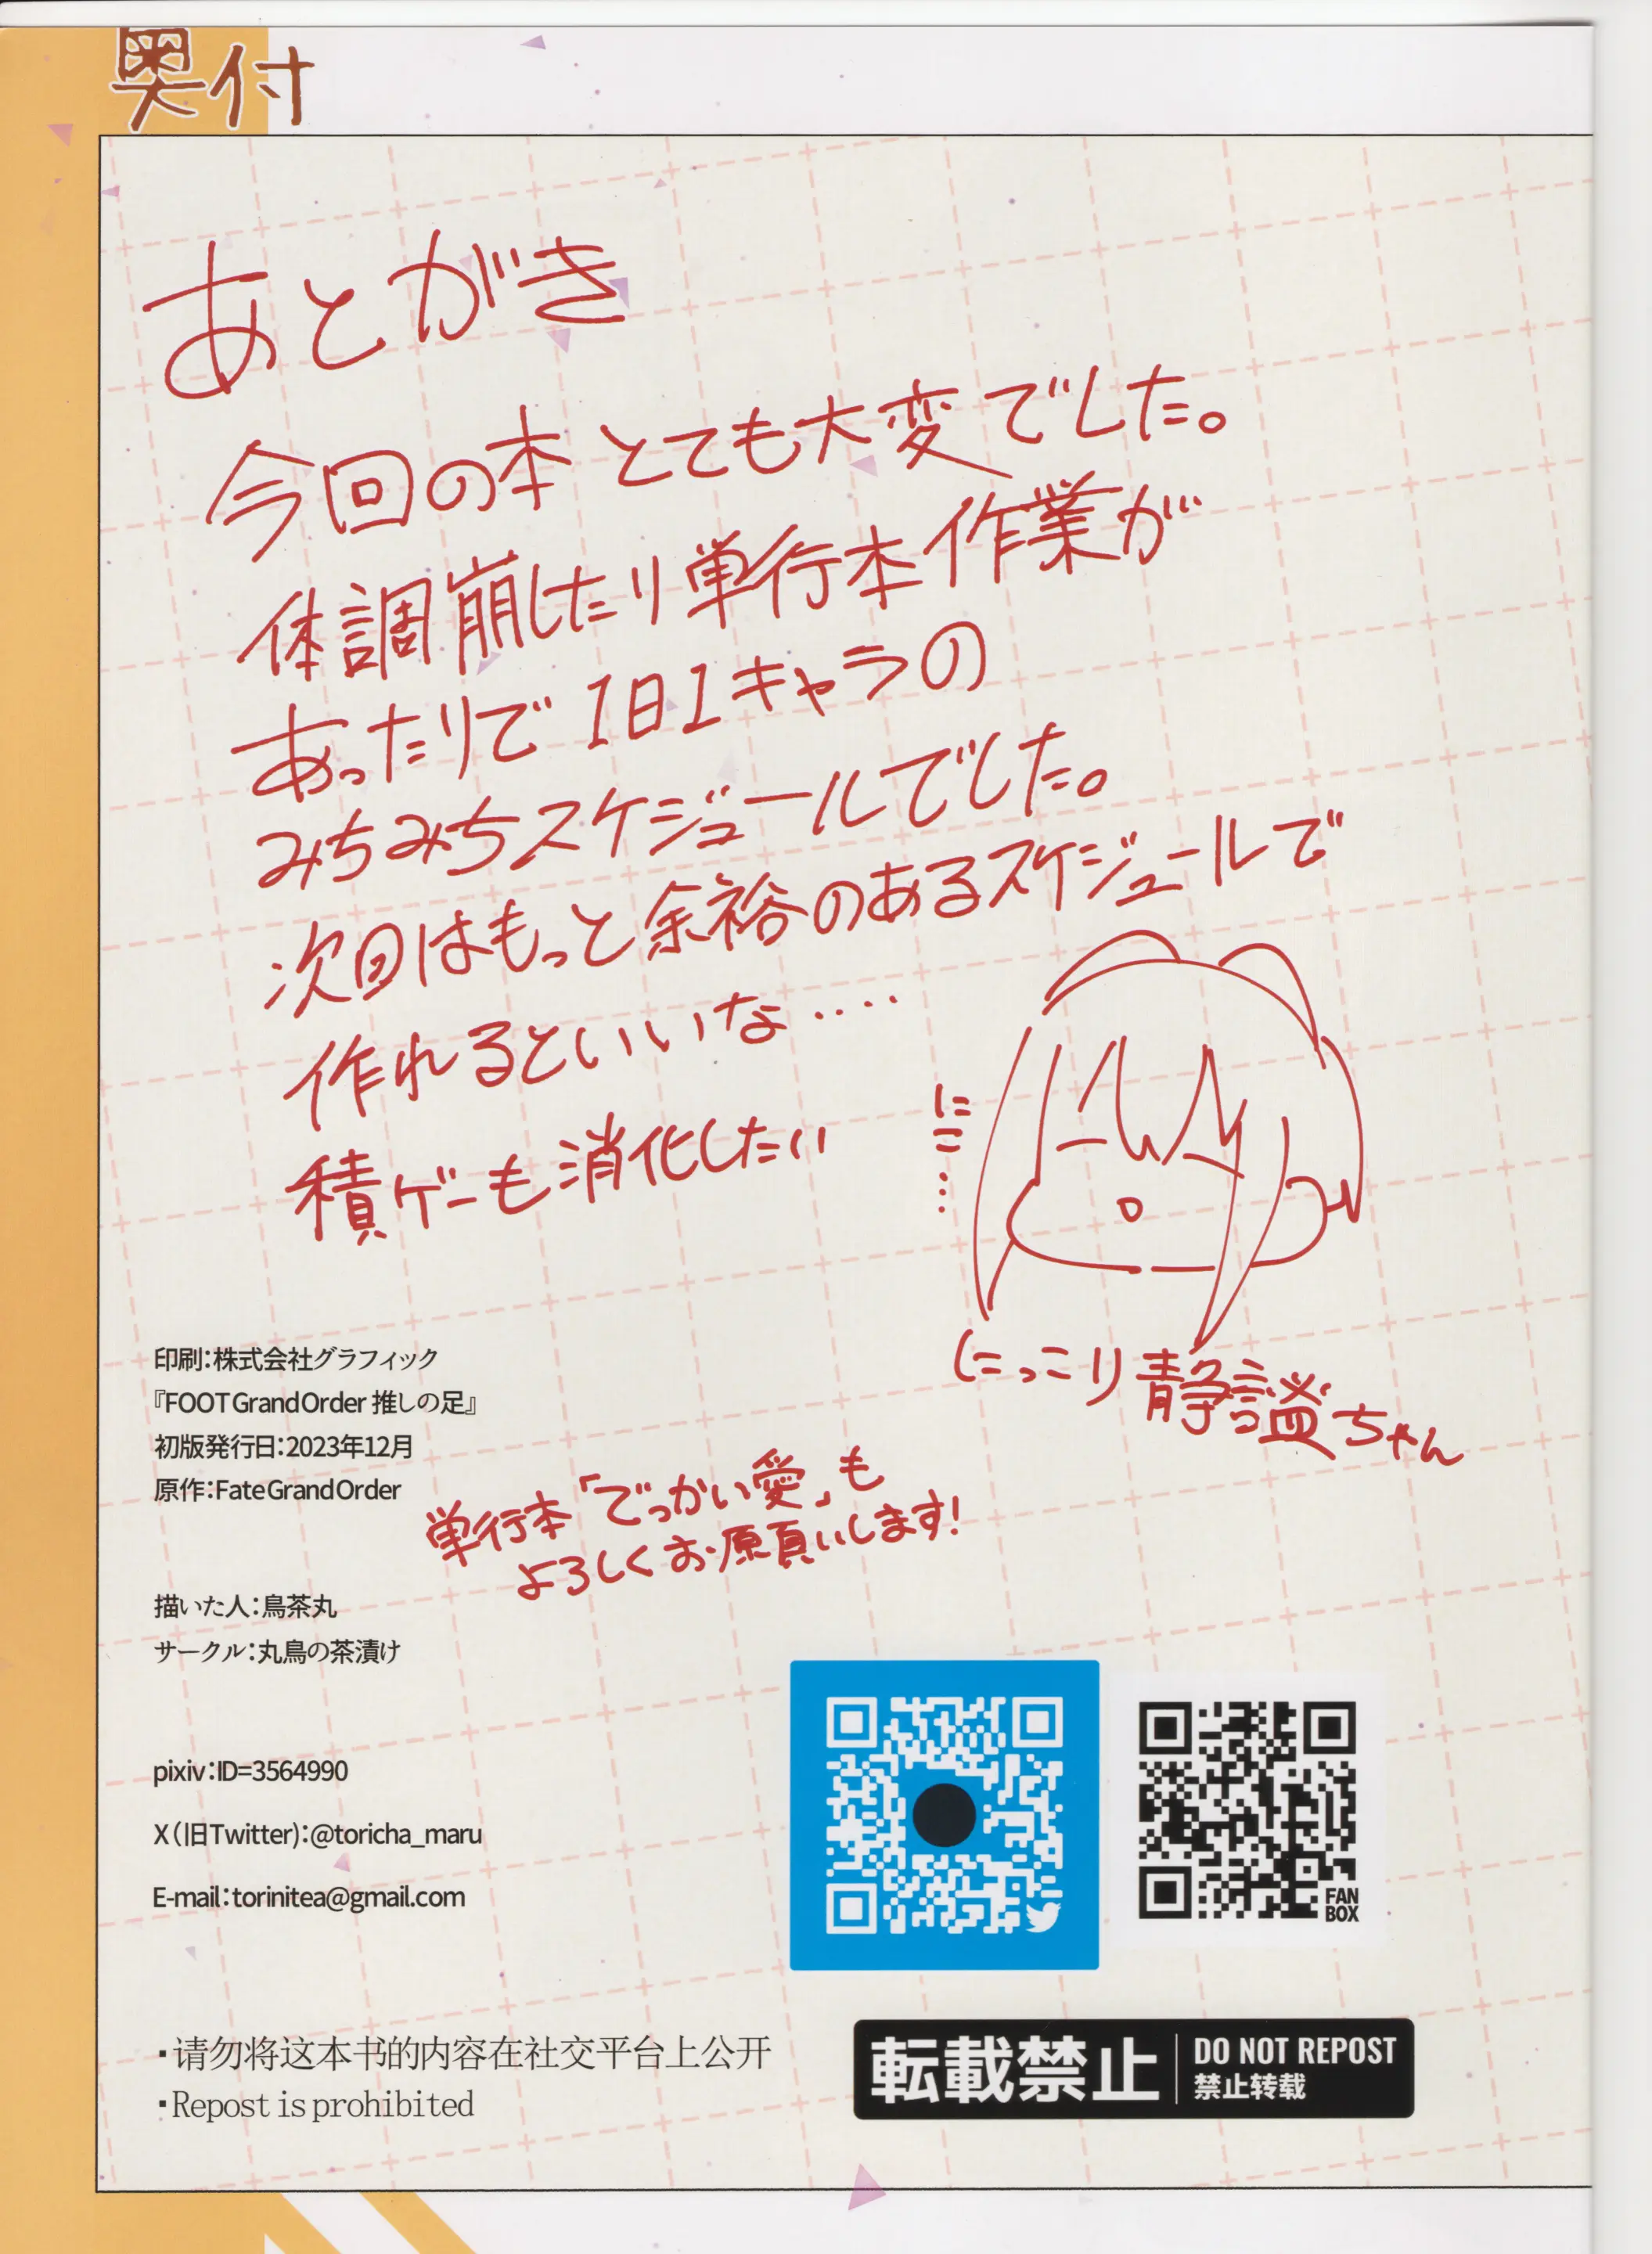 奥付
あとがき
今回の本とても大変でした。
体調崩したり単行本作業が
あったりで1日1キャラの
みちみちスケジュールでした。
次回はもっと余裕のあるスケジュールで
作れるといいな‥‥
積ゲーも消化したい
にこ…
にっこり静謐ちゃん
印刷:株式会社グラフィック
『FOOT Grand Order 推しの足』
初版発行日:2023年12月
原作:Fate Grand Order
単行本「でっかい愛」も
よろしくお願いします!
描いた人:鳥茶丸
サークル:丸鳥の茶漬け
pixiv:ID=3564990
X(旧Twitter):@toricha_maru
E-mail:torinitea@gmail.com
FAN
BOX
・请勿将这本书的内容在社交平台上公开
・Repost is prohibited
転載禁止
DO NOT REPOST
禁止转载